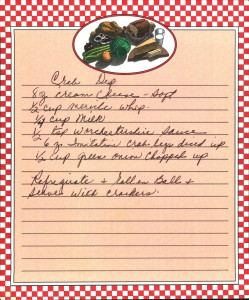 Crab Dip
8 oz cream cheese - soft
½ cup miracle whip.
¼ cup milk
½ tsp Worchestershire Sauce
6 oz Imitation crab legs diced up
½ cup green onion chopped up
Refrigirate +
Serve with crackers.